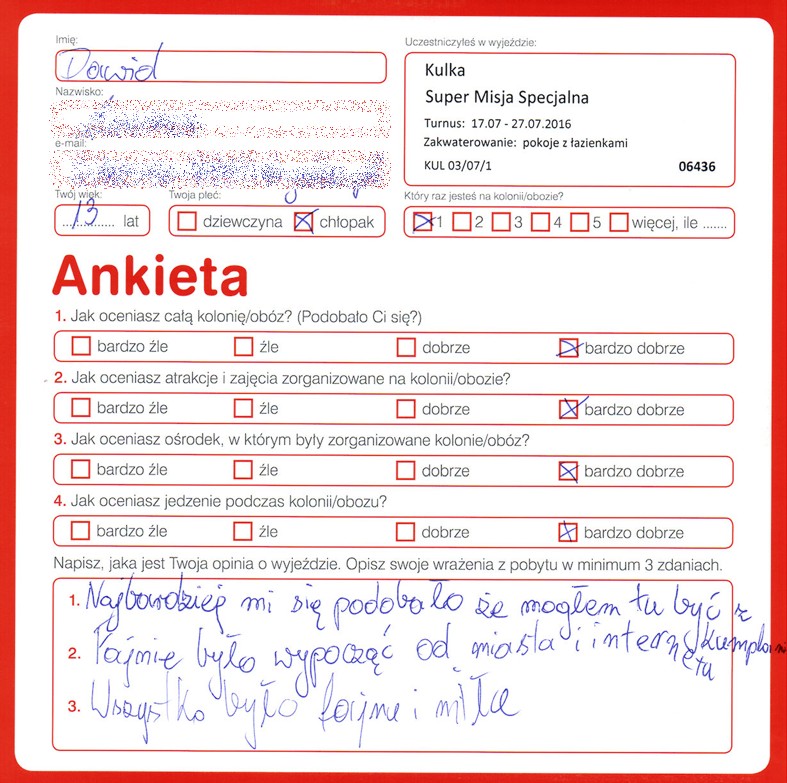 Imię:
Dawid
Nazwisko:
e-mail:
Twój wiek:
13 lat
Twoja płeć:
dziewczyna chłopak
Uczestniczyłeś w wyjeździe:
Kulka
Super Misja Specjalna
Turnus: 17.07 - 27.07.2016
Zakwaterowanie: pokoje z łazienkami
KUL 03/07/1 06436
Który raz jesteś na kolonii/obozie?
1 2 3 4 5 więcej, ile .......
Ankieta
1. Jak oceniasz całą kolonię/obóz? (Podobało Ci się?)
bardzo źle źle dobrze bardzo dobrze
2. Jak oceniasz atrakcje i zajęcia zorganizowane na kolonii/obozie?
bardzo źle źle dobrze bardzo dobrze
3. Jak oceniasz ośrodek, w którym były zorganizowane kolonie/obóz?
bardzo źle źle dobrze bardzo dobrze
4. Jak oceniasz jedzenie podczas kolonii/obozu?
bardzo źle źle dobrze bardzo dobrze
Napisz, jaka jest Twoja opinia o wyjeździe. Opisz swoje wrażenia z pobytu w minimum 3 zdaniach.
1. Najbardziej mi się podobało że mogłem tu być z
kumplami
2. Fajnie było wypocząć od miasta i internetu
3. Wszystko było fajne i miłe